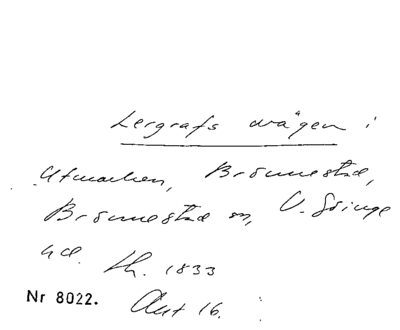 Lergrafs vägen i
Utmarken, Brönnestad,
Brönnestad sn, V. Göinge
hd. th. 1833
Nr 8022. Akt 16.